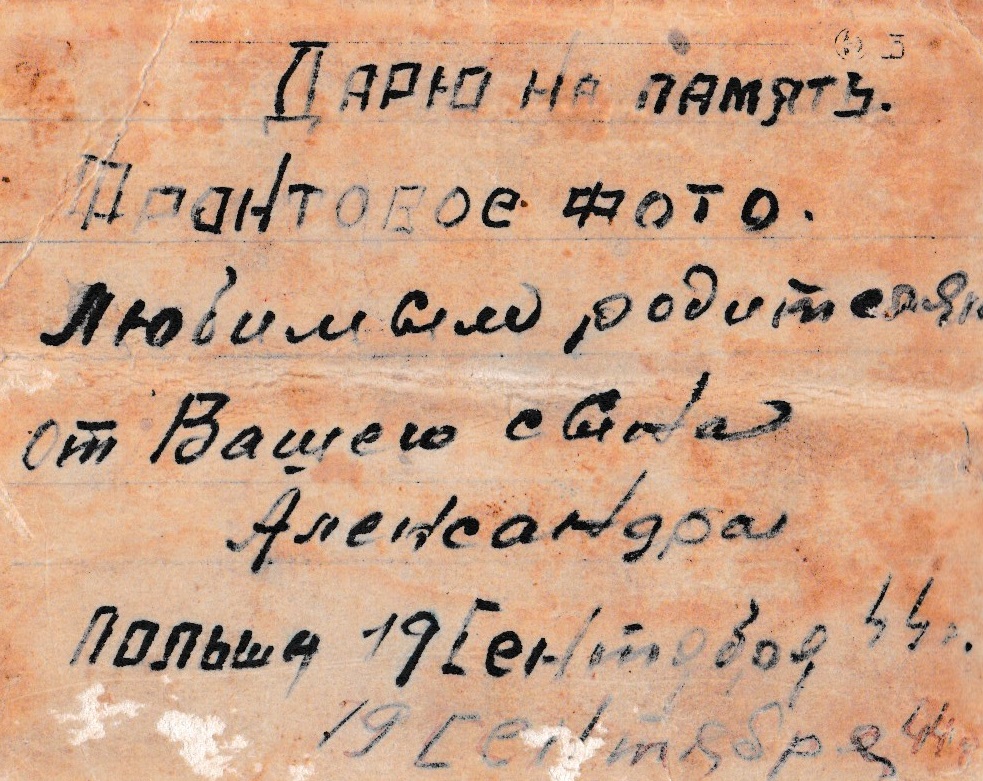 Дарю на память.
Фронтовое фото.
Любимым родителям
от Вашего сына
Александра
Польша 19 Сентября 44 г.
19 Сентября 44 г